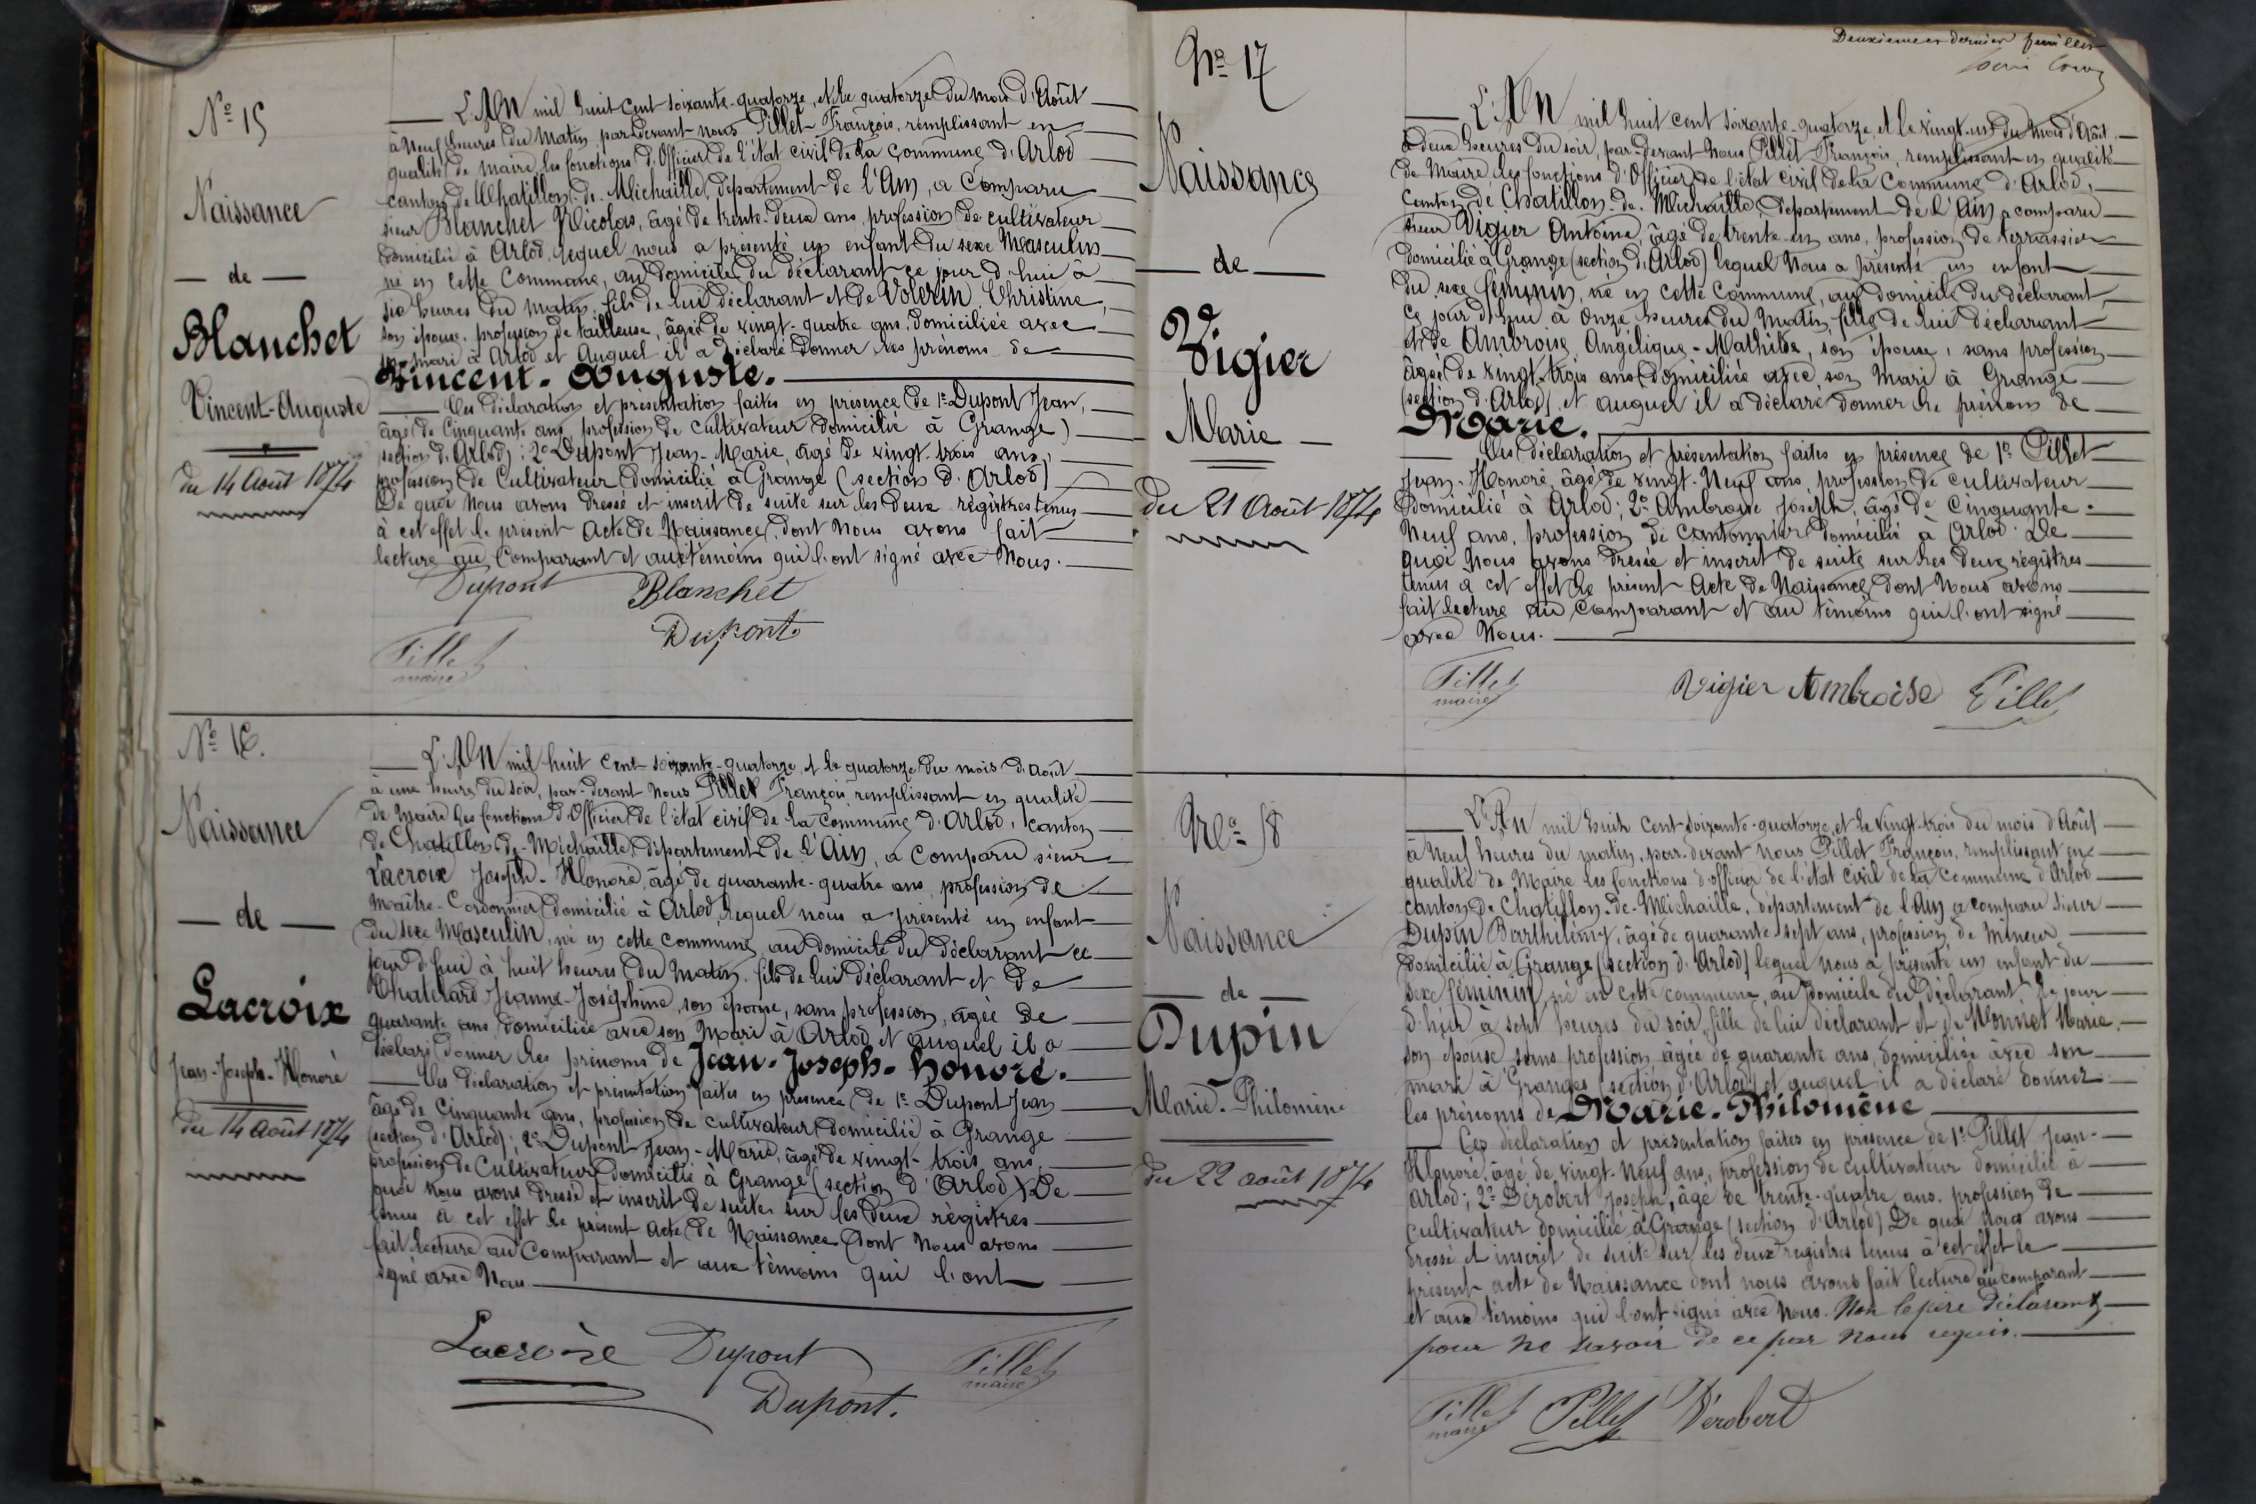 Nº 15
Naissance
de
Blanchet
Vincent-Auguste
du 14 Août 1874
L'AN mil huit cent soixante-quatorze, et le quatorze du mois d'Août
à neuf heures du matin, par-devant nous Pillet François, remplissant en
qualité de maire les fonctions d'Officier de l'état civil de la commune d'Arlod
canton de Chatillon-de-Michaille, département de l'Ain, a comparu
sieur Blanchet Nicolas, âgé de trente-deux ans, profession de cultivateur
domicilié à Arlod, lequel nous a présenté un enfant du sexe Masculin
né en cette Commune, au domicile du déclarant ce jour d'hui à
six heures du matin, fils de lui déclarant et de Volerin Christine,
son épouse, profession de tailleuse, âgée de vingt-quatre ans, domiciliée avec
son mari à Arlod et Auquel il a déclaré donner les prénoms de
Vincent-Auguste.
Ces déclaration et présentation faites en présence de 1º Dupont Jean,
âgé de Cinquante ans, profession de cultivateur domicilié à Grange
section d'Arlod; 2º Dupont Jean-Marie, âgé de vingt-trois ans,
profession de Cultivateur domicilié à Grange (section d'Arlod)
De quoi Nous avons dressé et inscrit de suite sur les deux régistres tenus
à cet effet le présent Acte de Naissance, dont Nous avons fait
lecture au Comparant et aux témoins qui l'ont signé avec Nous.
Dupont Blanchet
Dupont
Pillet
maire
Nº 16.
Naissance
de
Lacroix
Jean-Joseph-Honoré
du 14 Août 1874
L'AN mil huit cent soixante-quatorze, et le quatorze du mois d'Août
à une heure du soir, par-devant Nous Pillet François remplissant en qualité
de Maire les fonctions d'Officier de l'état civil de la commune d'Arlod, canton
de Chatillon-de-Michaille, département de l'Ain, a comparu sieur
Lacroix Joseph-Honoré, âgé de quarante-quatre ans, profession de
Maître-Cordonnier domicilié à Arlod, lequel nous a présenté un enfant
du sexe Masculin, né en cette commune au domicile du déclarant ce
jour d'hui à huit heures du Matin, fils de lui déclarant et de
Chatelard Jeanne-Joséphine, son épouse, sans profession, âgée de
quarante ans domiciliée avec son Mari à Arlod et auquel il a
déclaré donner les prénoms de Jean-Joseph-Honoré.
Ces déclaration et présentation faites en présence de 1º Dupont Jean
âgé de Cinquante ans, profession de cultivateur domicilié à Grange
(section d'Arlod); 2º Dupont Jean-Marie, âgé de vingt-trois ans,
profession de Cultivateur domicilié à Grange (section d'Arlod) De
quoi nous avons dressé et inscrit de suite sur les deux régistres
tenus à cet effet le présent Acte de Naissance dont Nous avons
fait lecture au Comparant et aux témoins qui l'ont
signé avec Nous
Lacroix Dupont Pillet
maire
Dupont.
Deuxième et dernier feuillet
Nº 17
Naissance
de
Vigier
Marie
Du 21 Août 1874
L'AN mil huit cent soixante-quatorze, et le vingt-un du mois d'Août
à deux heures du soir, par-devant Nous Pillet François, remplissant en qualité
de Maire les fonctions d'Officier de l'état civil de la Commune d'Arlod,
Canton de Chatillon-de-Michaille, département de l'Ain a comparu
sieur Vigier Antoine, âgé de trente-un ans, profession de terrassier
domicilié à Grange (section d'Arlod) lequel Nous a présenté un enfant
du sexe féminin, né en cette Commune, au domicile du déclarant,
ce jour d'hui à Onze heures du Matin, fille de lui déclarant
et de Ambroise Angélique-Mathilde, son épouse, sans profession
âgée de vingt-trois ans domiciliée avec son Mari à Grange
(section d'Arlod), et auquel il a déclaré donner le prénom de
Marie.
Ces déclaration et présentation faites en présence de 1º Pillet
Jean-Honoré, âgé de vingt-Neuf ans, profession de cultivateur
domicilié à Arlod; 2º Ambroise Joseph, âgé de Cinquante-
Neuf ans, profession de cantonnier domicilié à Arlod. De
quoi Nous avons dressé et inscrit de suite sur les deux régistres
tenus à cet effet le présent Acte de Naissance dont Nous avons
fait lecture au Comparant et au témoins qui l'ont signé
avec Nous.
Pillet
maire
Vigier Ambroise Pillet
Nº 18
Naissance
de
Dupin
Marie-Philomène
du 22 août 1874
L'An mil huit cent-soixante-quatorze et le vingt-trois du mois d'Août
à Neuf heures du matin, par-devant nous Pillet François, remplissant en
qualité de Maire les fonctions d'officier de l'état civil de la commune d'Arlod
canton de Chatillon-de-Michaille, département de l'Ain a comparu sieur
Dupin Barthélemy, âgé de quarante-sept ans, profession de Mineur
domicilié à Grange (section d'Arlod) lequel nous a présenté un enfant du
sexe féminin né en cette commune, au domicile du déclarant le jour
d'hier à sept heures du soir, fille de lui déclarant et de Monnet Marie,
son épouse sans profession âgée de quarante ans, domiciliée avec son
mari à Granges (section d'Arlod) et auquel il a déclaré donner
les prénoms de Marie-Philomène
Ces déclaration et présentation faites en présence de 1º Pillet Jean-
Honoré, âgé de vingt-Neuf ans, profession de cultivateur domicilié à
Arlod; 2º Dérobert Joseph, âgé de trente-quatre ans, profession de
cultivateur domicilié à Grange (section d'Arlod) De quoi Nous avons
dressé et inscrit de suite sur les deux registres tenus à cet effet le
présent acte de Naissance dont nous avons fait lecture au comparant
et aux témoins qui l'ont signé avec Nous. Non le père déclarant
pour ne savoir de ce par Nous requis.
Pillet
maire
Pillet Dérobert